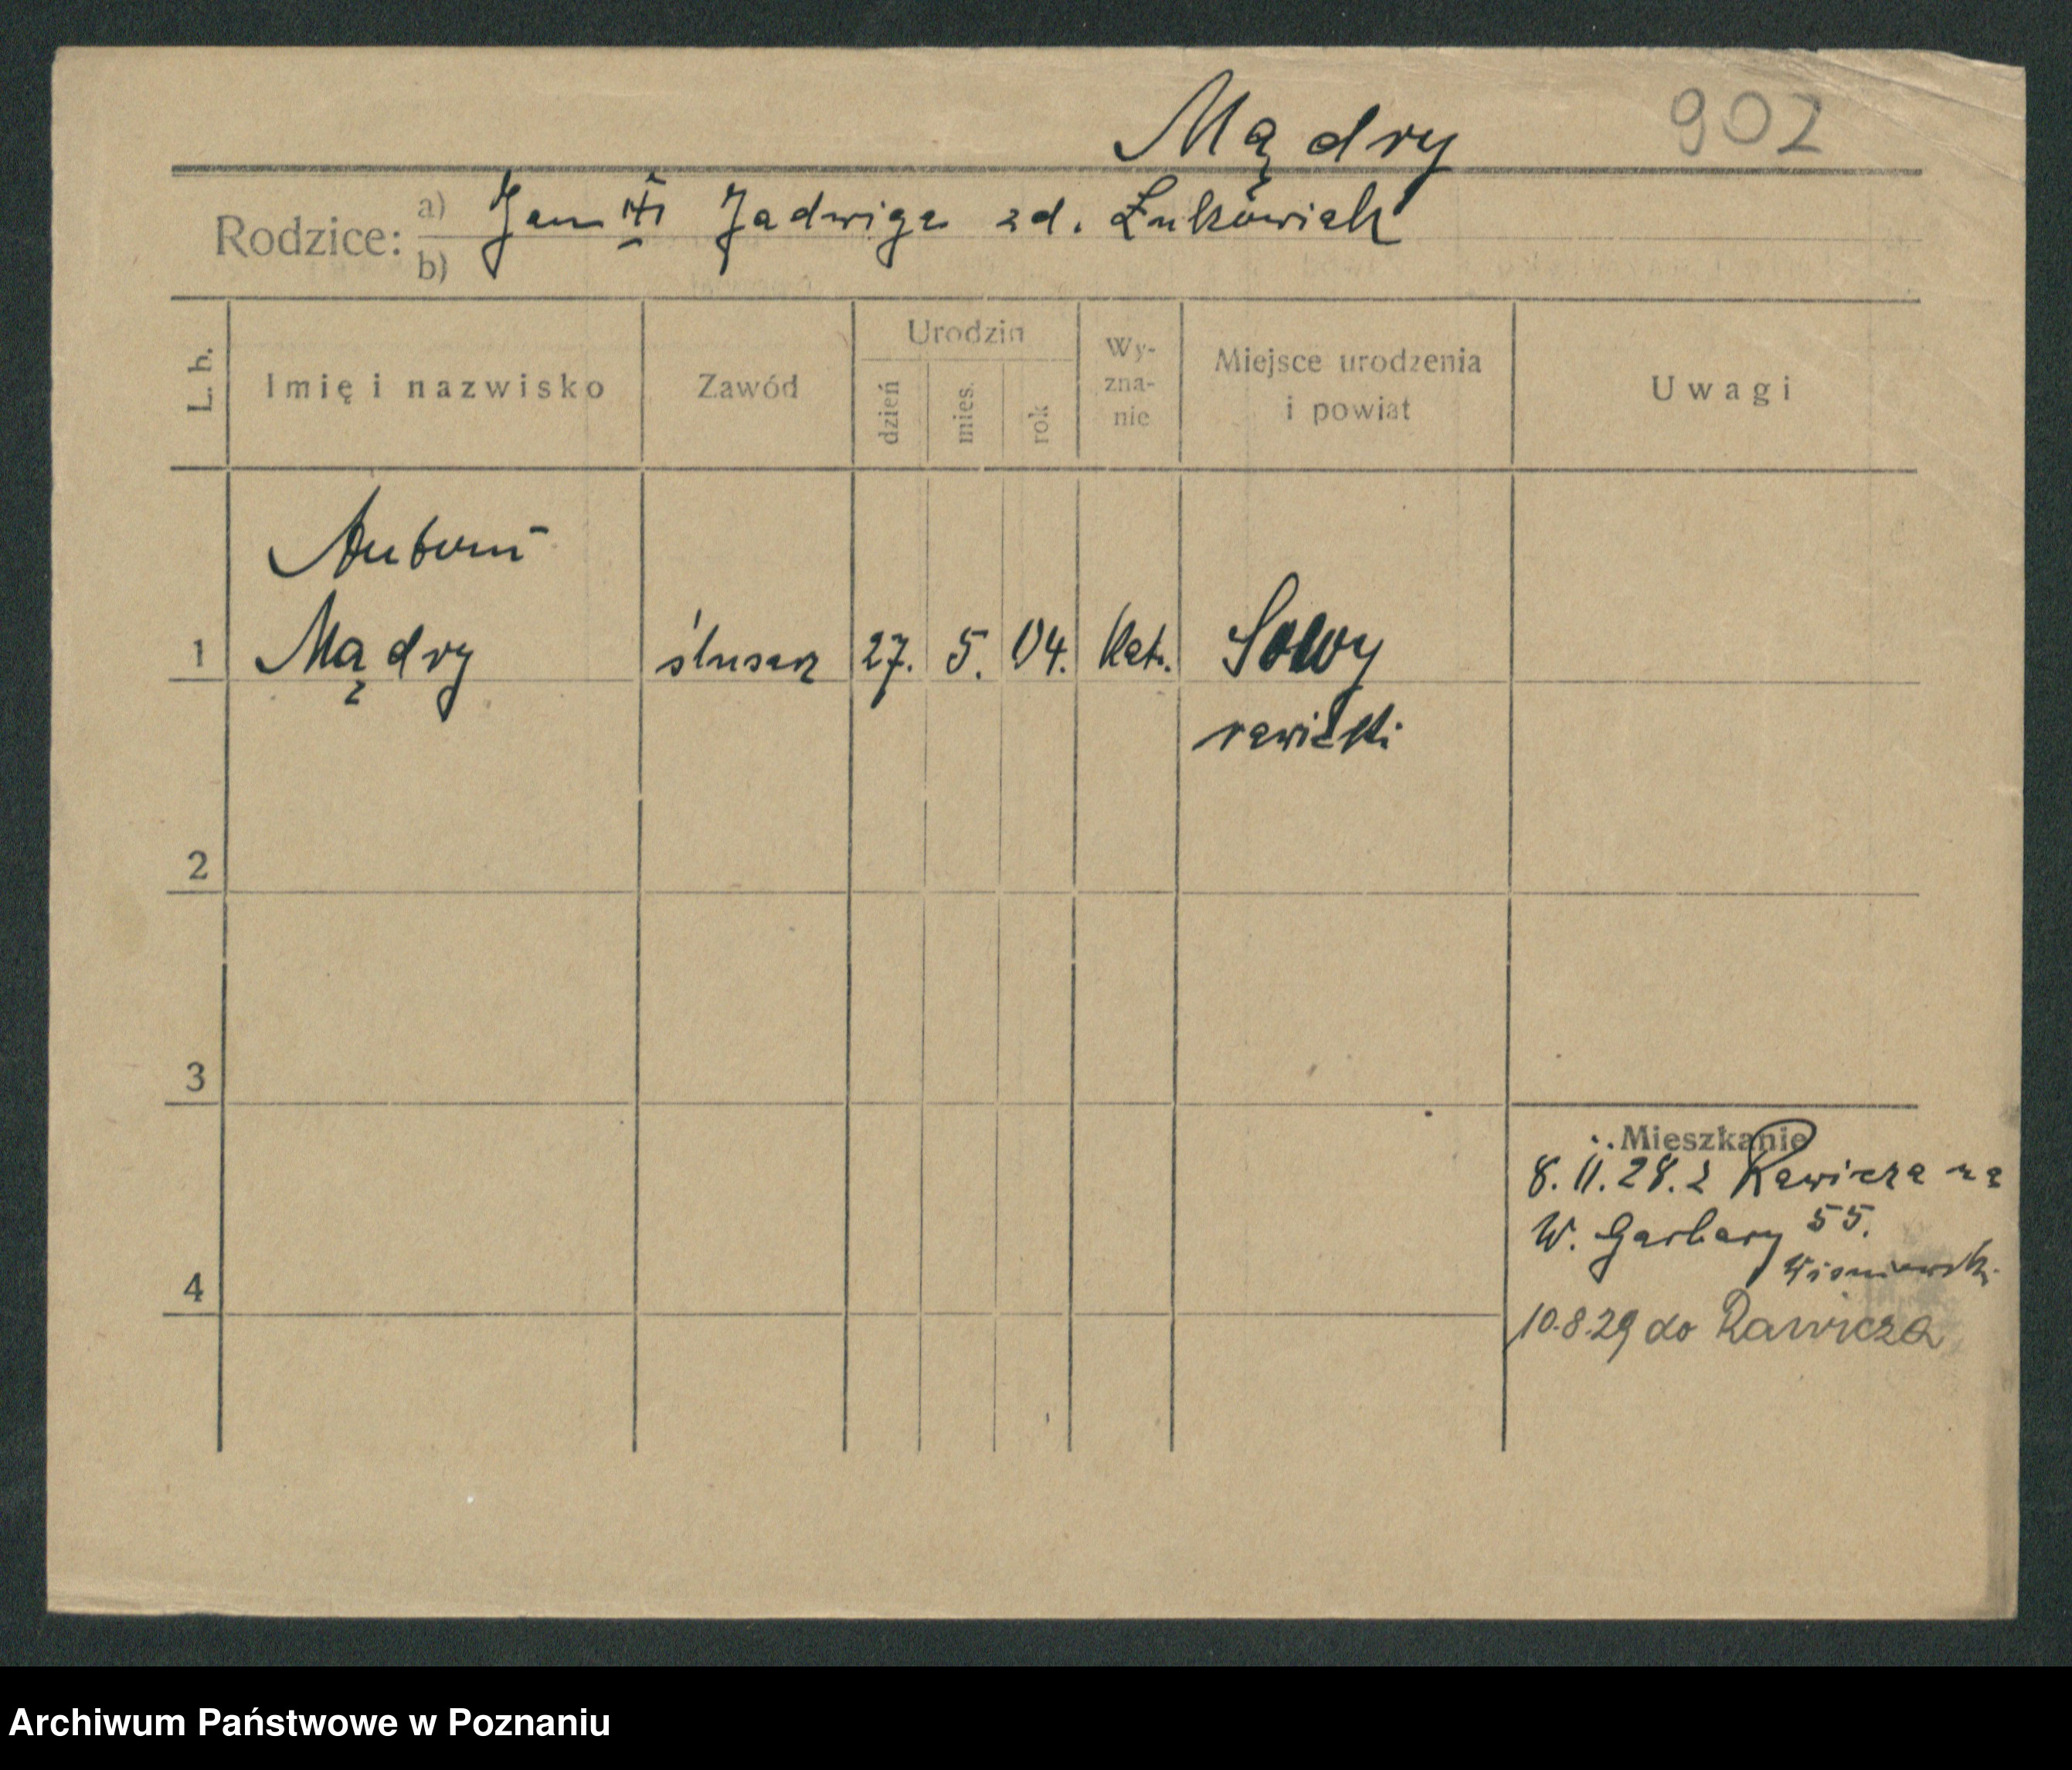 Mądry 902
Rodzice: a) Jan Jadwiga zd. Łukowiak
b)
L. b. Imię i nazwisko Zawód Urodzin dzień mies. rok Wy-zna-nie Miejsce urodzenia i powiat Uwagi
Antoni
1 Mądry ślusarz 27. 5. 04. kat. Sowy
rawicki
2
3
4
Mieszkanie
8. 11. 28. z Rawicza na
W. Garbary 55.
10.8.29 do Rawicza
Archiwum Państwowe w Poznaniu